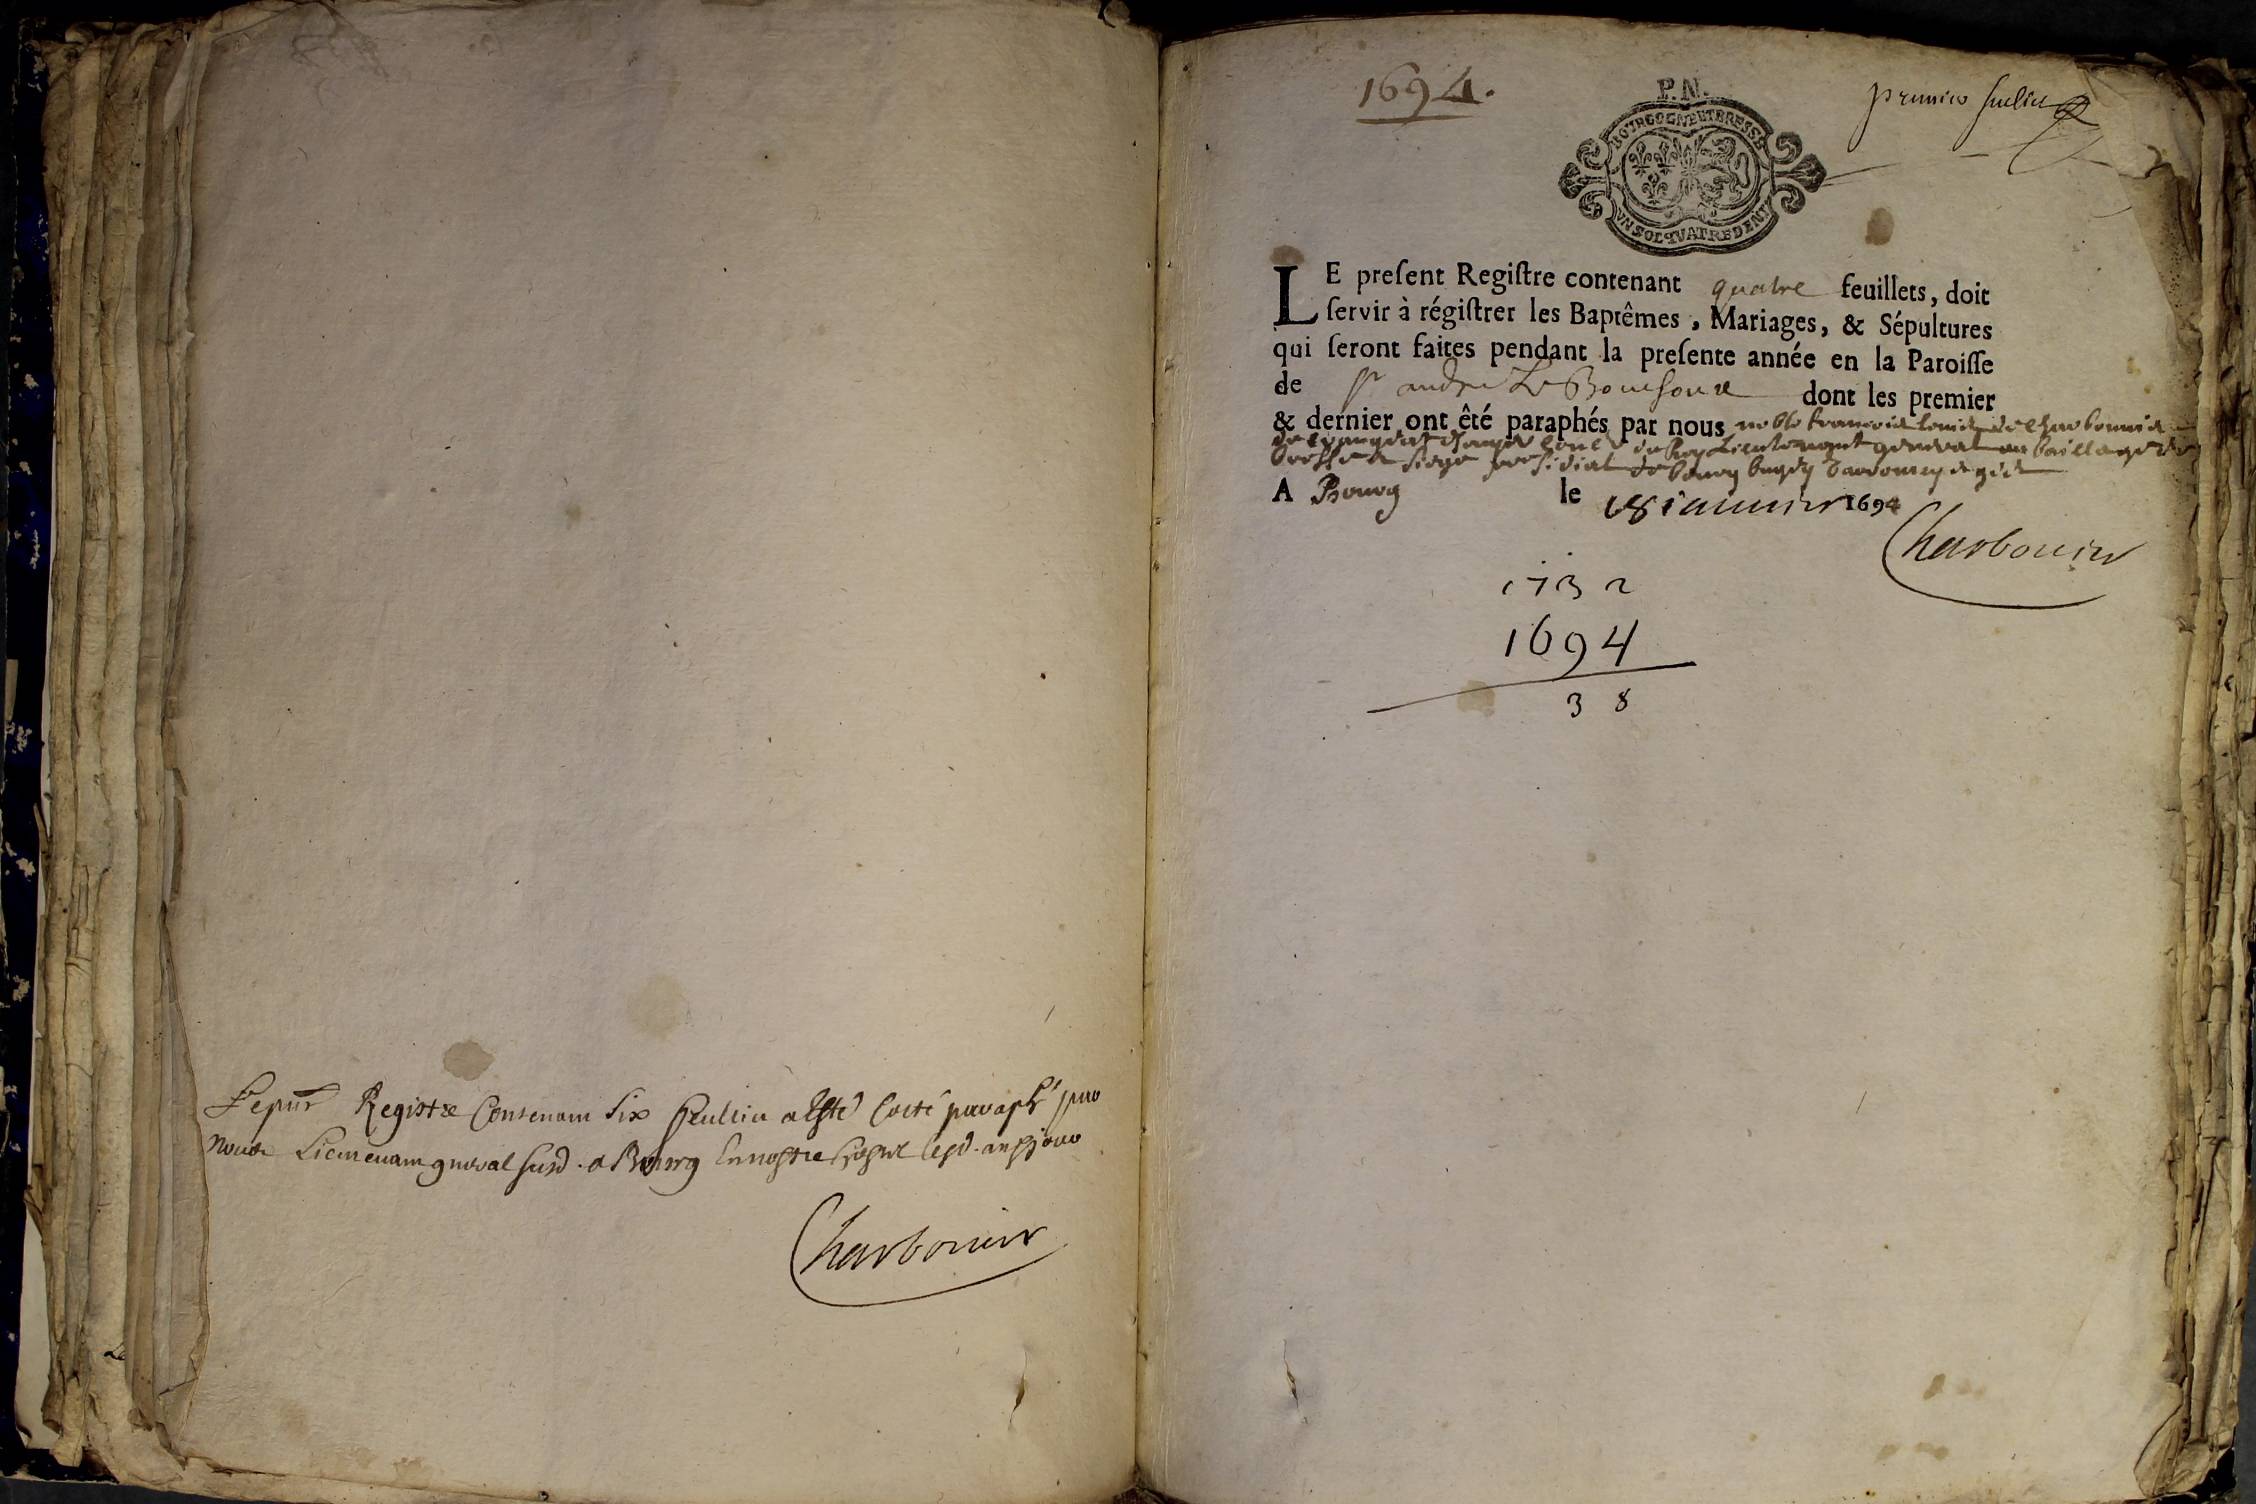 Le pnt Registre Contenant Six feuillets a Esté Cotté paraphé par
nous Lieutenant general susd. a Bourg En nostre hostel les d. an & jour
Charbonier
1694.
P.N.
premier feuillet
BOURGOGNE ET BRESSE
VN SOL QVATRE DEN
LE preſent Regiſtre contenant quatre feuillets, doit
ſervir à régiſtrer les Baptêmes, Mariages, & Sépultures
qui ſeront faites pendant la preſente année en la Paroiſſe
de St andre Le Bouchoux dont les premier
& dernier ont êté paraphés par nous noble francois Louis de Charbonnier
Conser du Roy Lieutenant general au bailliage de
bresse & siege presidial de bourg bugey
A Bourg le 18 januier 1694
Charbonier
1732
1694
38